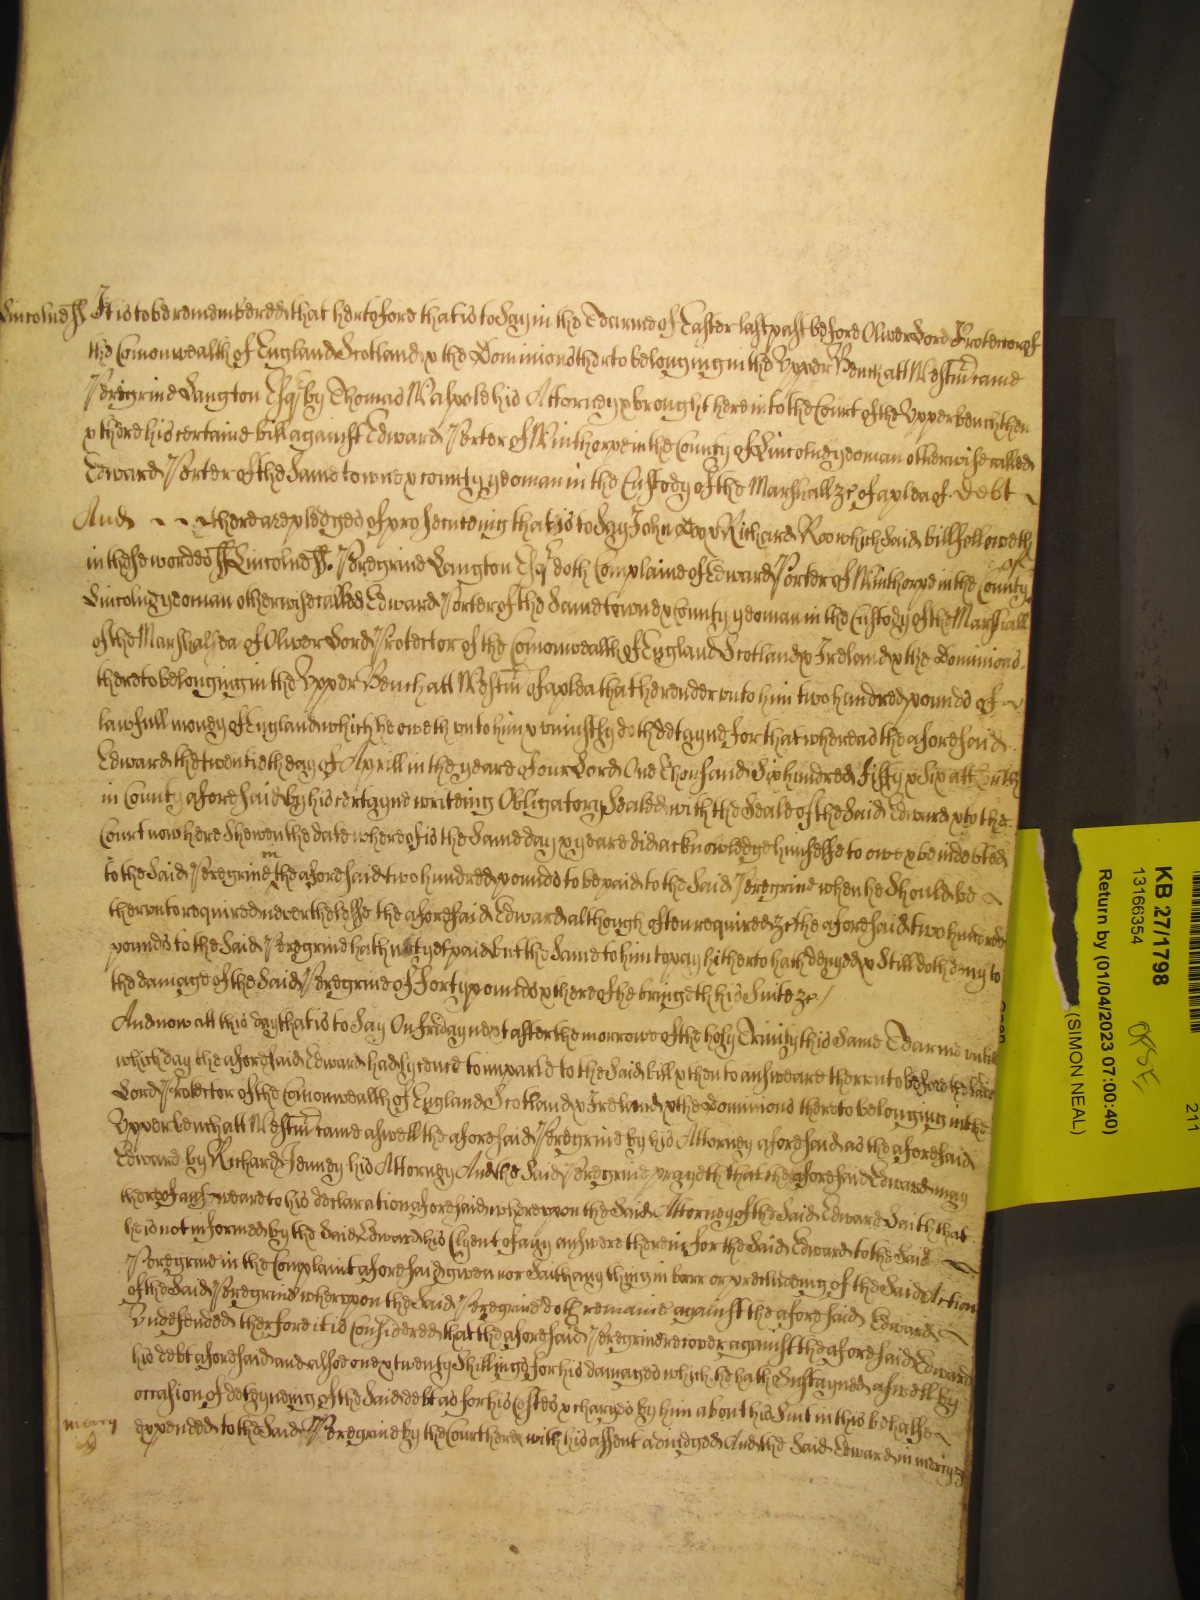 Lincolne ss It is to be remembred that hertofore that is to say in the Tearme of Easter last past before Oliver Lord Protector of
the Comonwealth of England Scotland & the Dominions therto belonging in the Upper Bench att Westmr came
Peregrine Langton Esqr by Thomas Walpole his Attorney & brought here into the Court of the Upper bench then
& there his certaine bill against Edward Porter of Winthorpe in the County of Lincolne yeoman otherwise called
Edward Porter of the same towne & county yeoman in the Custody of the Marshall &c of a plea of Debt
And there are pledges of prosecuteing that is to say John Doo & Richard Roo which said bill followeth
in these wordes ss Lincolne ss. Peregrine Langton Esqr doth Complaine of Edward Porter of Winthorpe in the County of
Lincolne yeoman otherwise called Edward Porter of the same towne & County yeoman in the Custody of the Marshall
of the Marshalsea of Oliver Lord Protector of the Comonwealth of England Scotland & Ireland & the Dominions
thereto belonging in the Upper Bench att Westmr of a plea that he render unto him two hundred pounds of
lawfull money of England which he oweth unto him & uniustly detheteyne for that whereas the aforesaid
Edward the twentieth day of Aprill in the yeare of our Lord One Thousand Six hundred fifty & Six att
in County aforesaid by his certayne writeing Obligatory Sealed with the Seale of the said Edward & to the
Court now here shewen the date whereof is the same day & yeare did acknowledge himselfe to owe & be indebted
to the said Peregrine in the aforesaid two hundred pounds to be paid to the said Peregrine when he should be
therunto required neverthelesse the aforesaid Edward although often required &c the aforesaid two hundred
pounds to the said Peregrine hath not yet paid but the same to him to pay hitherto hath denyed & still doth deny to
the damage of the said Peregrine of forty pounds & therof he bringeth his suite &c /
And now att this day that is to say On friday next after the morrowe of the holy Trinity this same Tearme untill
which day the aforesaid Edward had lycence to imparle to the said bill & then to answeare thereunto before the said
Lord Protector of the Comonwealth of England Scotland & Ireland & the Dominions thereto belonging in the
Upper bench att Westmr came aswell the aforesaid Peregrine by his Attorney aforesaid as the aforesaid
Edward by Richard Jenney his Attorney And the said Peregrine prayeth that the aforesaid Edward may
therof answeare to his declaration aforesaid wherupon the said Attorney of the said Edward saith that
he is not informed by the said Edward his Clyent of any answere therein for the said Edward to the said
Peregrine in the Complaint aforesaid given nor saith any thing in barr or precludeing of the said Action
of the said Peregrine wherupon the said Peregrine doth remaine against the aforesaid Edward
Undefended therfore it is Considered that the aforesaid Peregrine recover against the aforesaid Edward
his debt aforesaid and alsoe one & twenty shillings for his damages which he hath sustayned aswell by
occasion of deteyneing of the said debt as for his Costes & charges by him about his suit in this behalfe
mercy expended to the said Peregrine by the Court here with his assent adiudged And the said Edward in mercy &c
KB 27/1798
13166354
Return by (01/04/2023 07:00:40)
(SIMON NEAL)
211